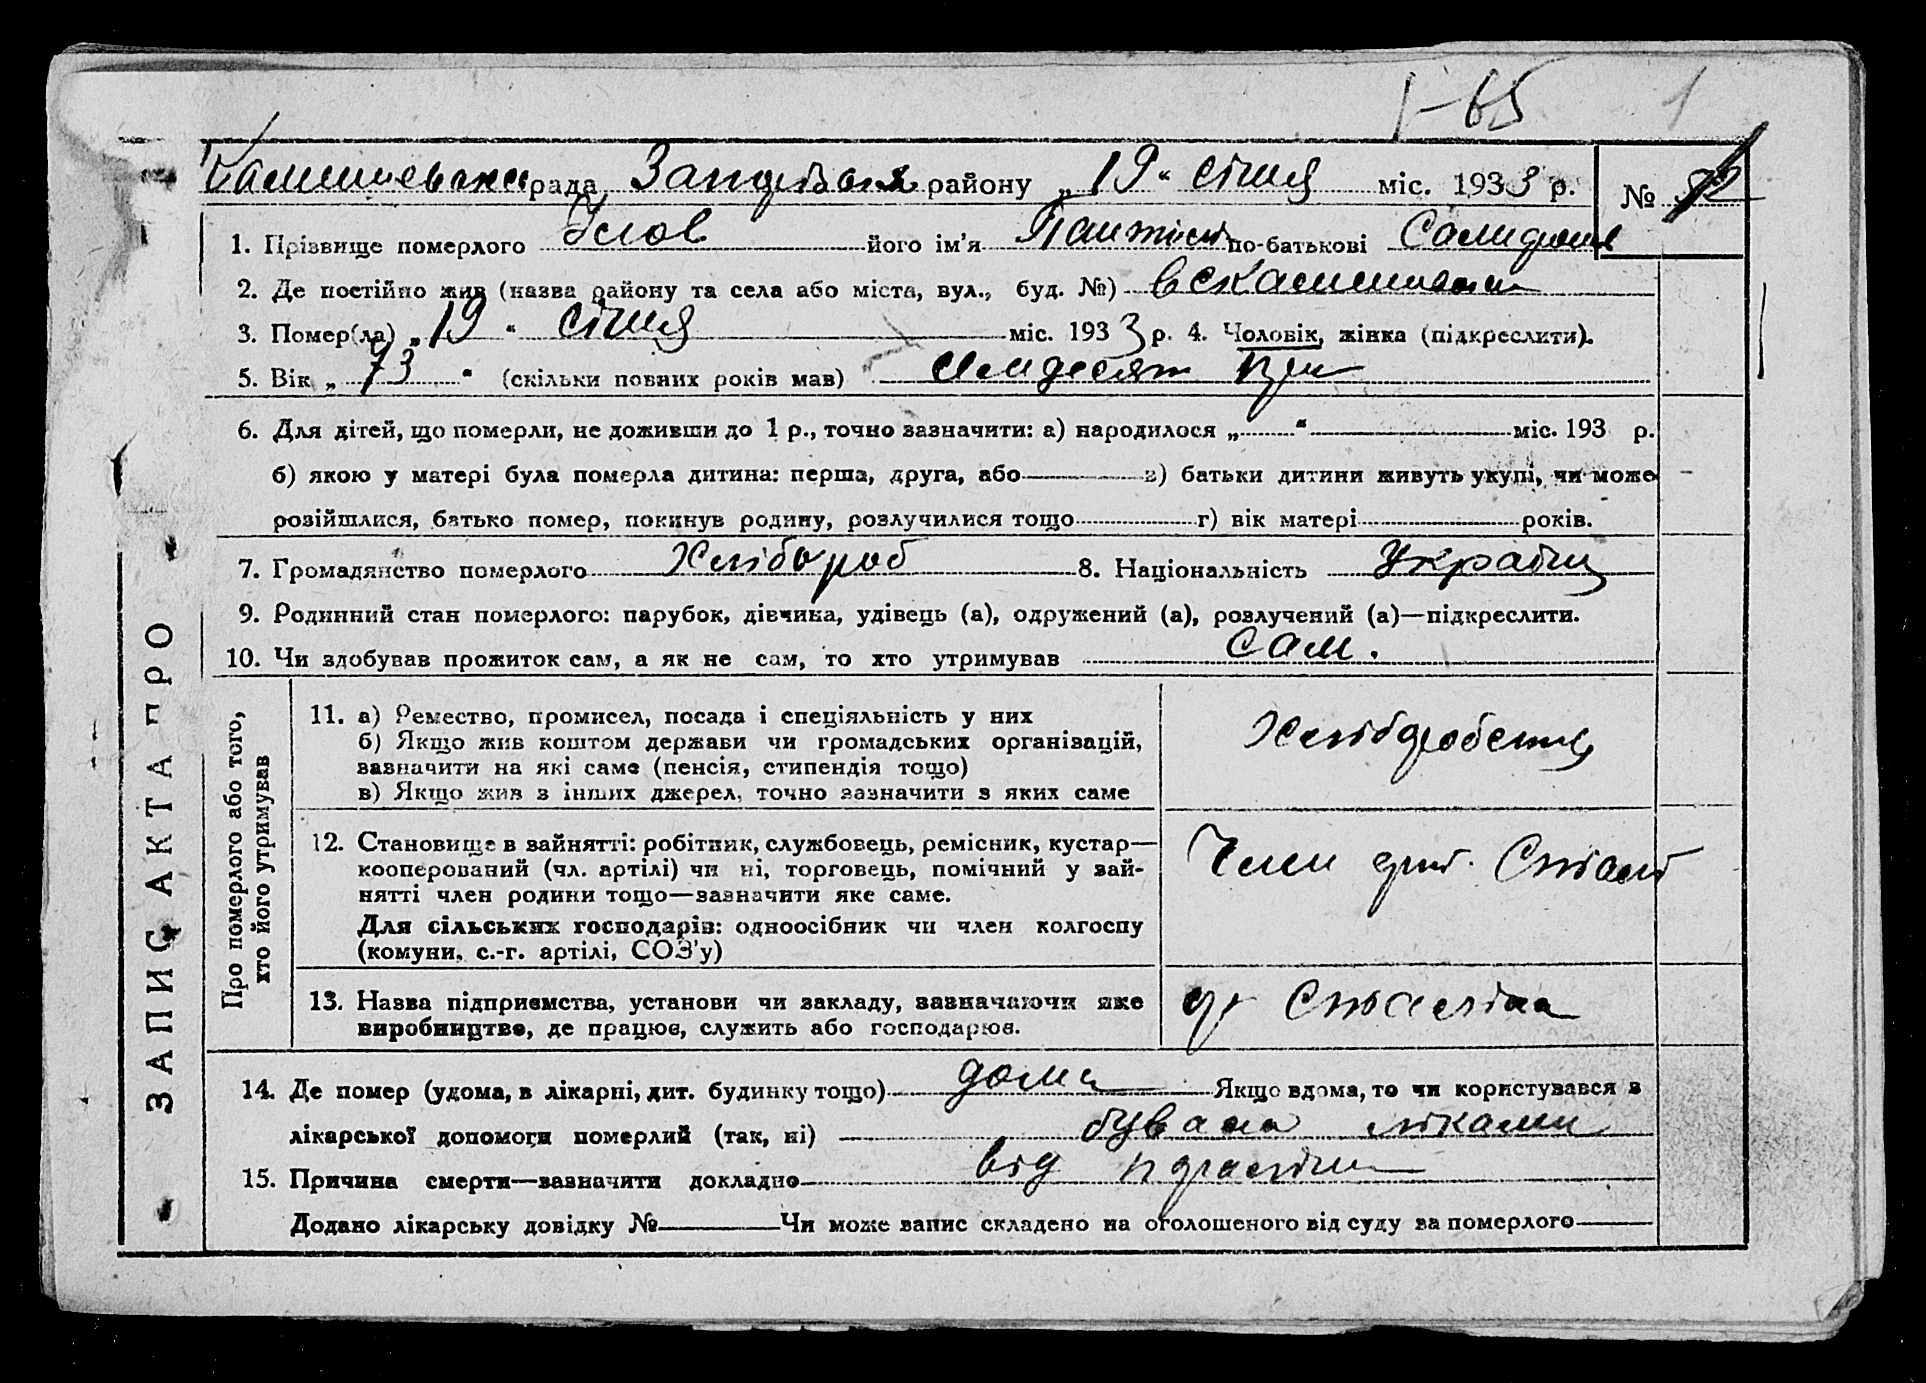 1-65 1
рада району „19“ січня міс. 1933 р. №
1. Прізвище померлого Білов його ім'я по-батькові
2. Де постійно жив (назва району та села або міста, вул., буд. №)
3. Помер(ла) „19“ січня міс. 1933 р. 4. Чоловік, жінка (підкреслити).
5. Вік „73“ (скільки повних років мав) семдесят три
6. Для дітей, що померли, не доживши до 1 р., точно зазначити: а) народилося „ “ міс. 193 р.
б) якою у матері була померла дитина: перша, друга, або в) батьки дитини живуть укупі, чи може
розійшлися, батько помер, покинув родину, розлучилися тощо г) вік матері років.
7. Громадянство померлого Хлібороб 8. Національність Українц
9. Родинний стан померлого: парубок, дівчина, удівець (а), одружений (а), розлучений (а)—підкреслити.
10. Чи здобував прожиток сам, а як не сам, то хто утримував сам.
11. а) Ремество, промисел, посада і спеціяльність у них
б) Якщо жив коштом держави чи громадських організацій,
зазначити на які саме (пенсія, стипендія тощо)
в) Якщо жив з інших джерел, точно зазначити з яких саме
12. Становище в зайнятті: робітник, службовець, ремісник, кустар—
кооперований (чл. артілі) чи ні, торговець, помічний у зай-
нятті член родини тощо—зазначити яке саме.
Для сільських господарів: одноосібник чи член колгоспу
(комуни, с.-г. артілі, СОЗ'у)
Член Сталі
13. Назва підприємства, установи чи закладу, зазначаючи яке
виробництво, де працює, служить або господарює.
Сталіна
14. Де помер (удома, в лікарні, дит. будинку тощо) дома Якщо вдома, то чи користувався з
лікарської допомоги померлий (так, ні) ліками
15. Причина смерти—зазначити докладно від
Додано лікарську довідку № Чи може запис складено на оголошеного від суду за померлого
ЗАПИС АКТА ПРО
Про померлого або того,
хто його утримував